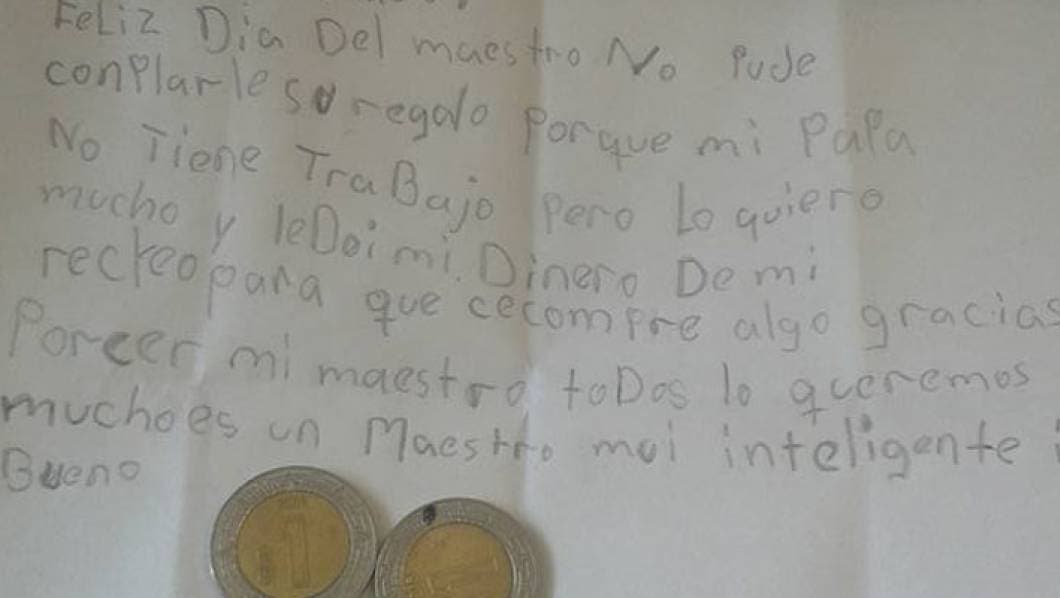 FeLiz Dia Del maestro No Pude
conPlarle su regalo Porque mi PaPa
No Tiene TraBajo Pero Lo quiero
mucho y leDoi mi. Dinero De mi
recreo para que cecompre algo gracias
Porcer mi maestro toDos lo queremos
muchoes un Maestro mui inteligente i
Bueno
1
1